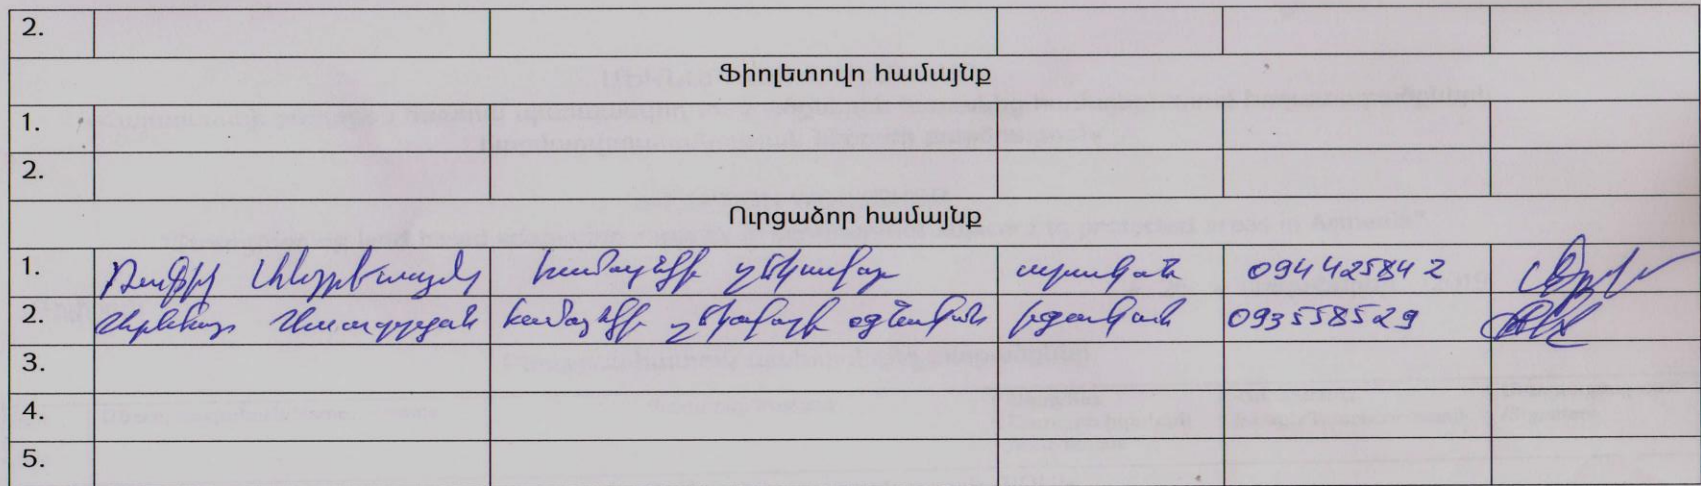 2.
Ֆիոլետովո համայնք
1.
2.
Ուրցաձոր համայնք
1. Ռաֆիկ Անդրեասյան համայնքի ղեկավար արական 094425842
2. համայնքի ղեկավարի օգնական իգական 093558529
3.
4.
5.